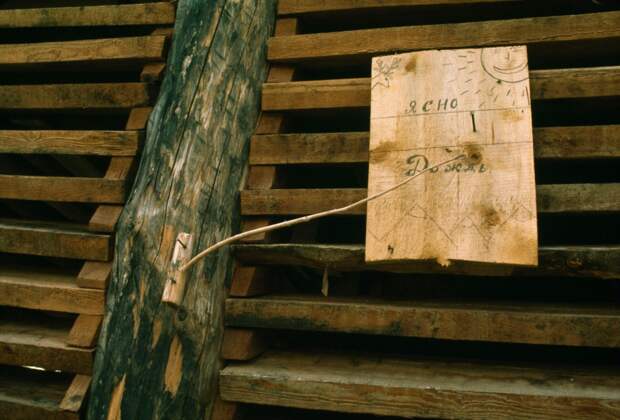 ясно
Дождь